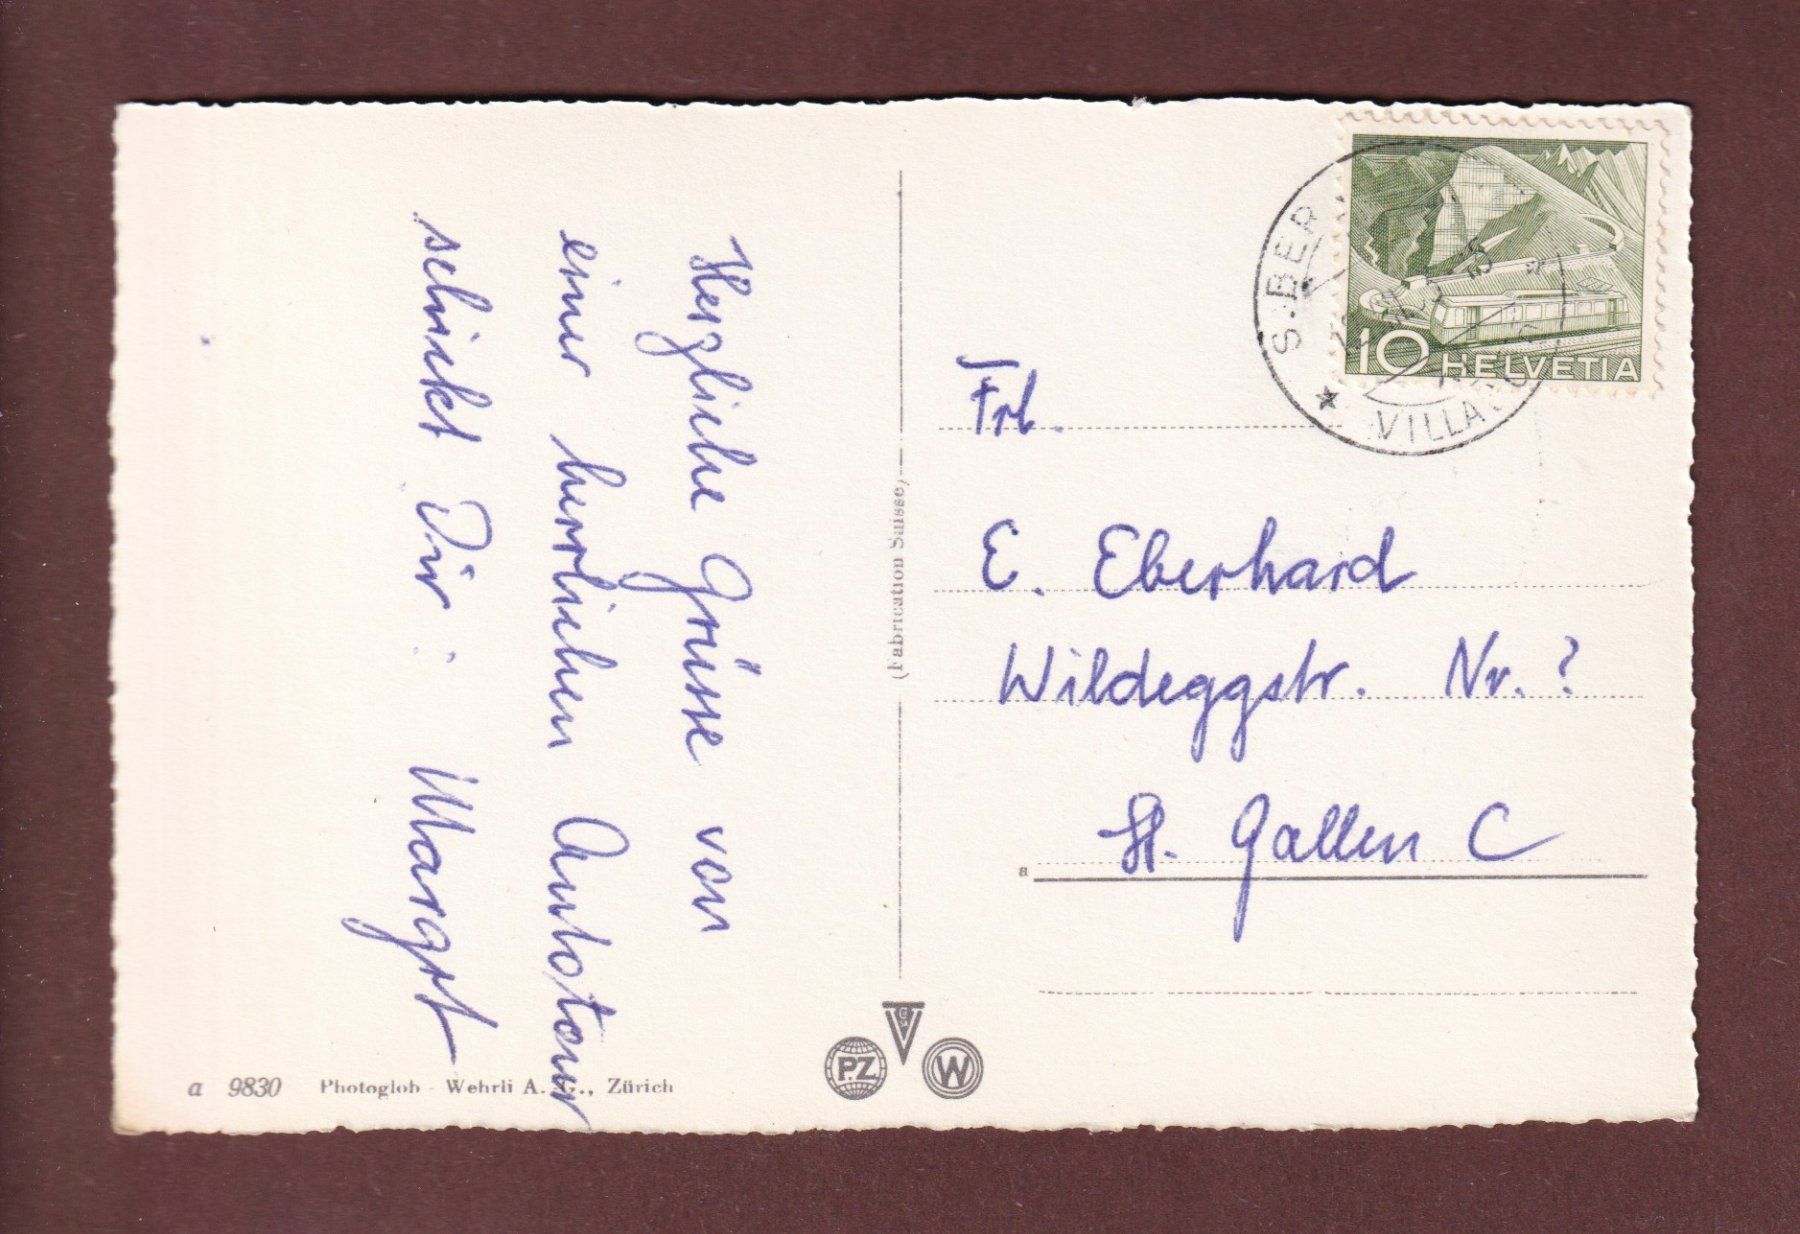 Herzliche Grüsse von
einer herrlichen Autotour
schickt Dir: Margrt
(Fabrication Suisse)
10 HELVETIA
S. BER
VILLAGGIO
Frl.
E. Eberhard
Wildeggstr. Nr. ?
St. Gallen C
a
a 9830 Photoglob - Wehrli A. , Zürich
P.Z
W